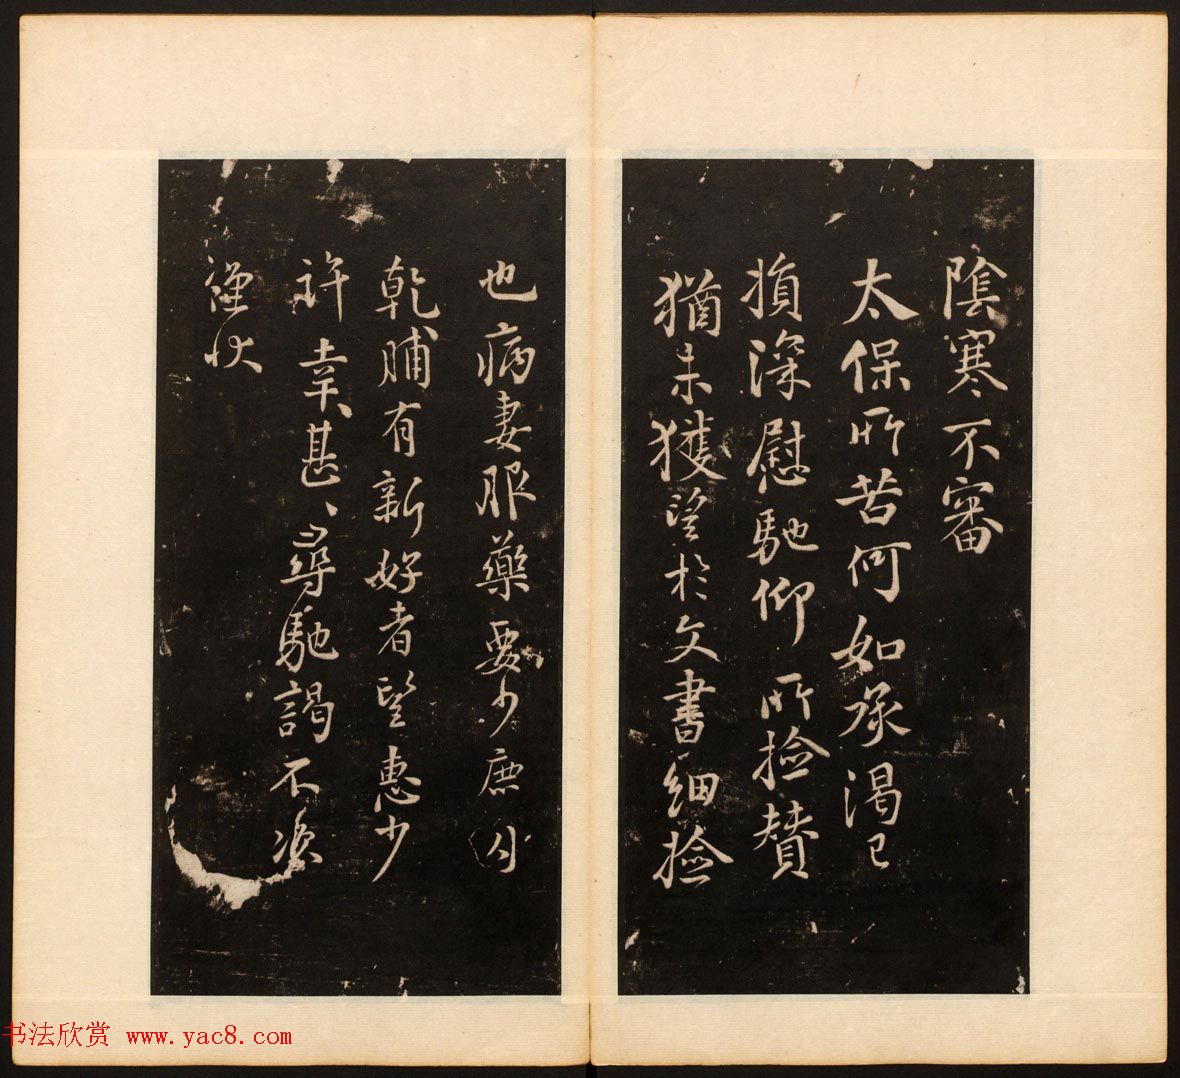 陰寒不審
太保所苦何如承渴已
損深慰馳仰所撿贊
猶未獲望於文書細撿
也病妻服藥要少鹿肉
乾脯有新好者望惠少
許幸甚、尋馳謁不次
謹狀
书法欣赏 www.yac8.com